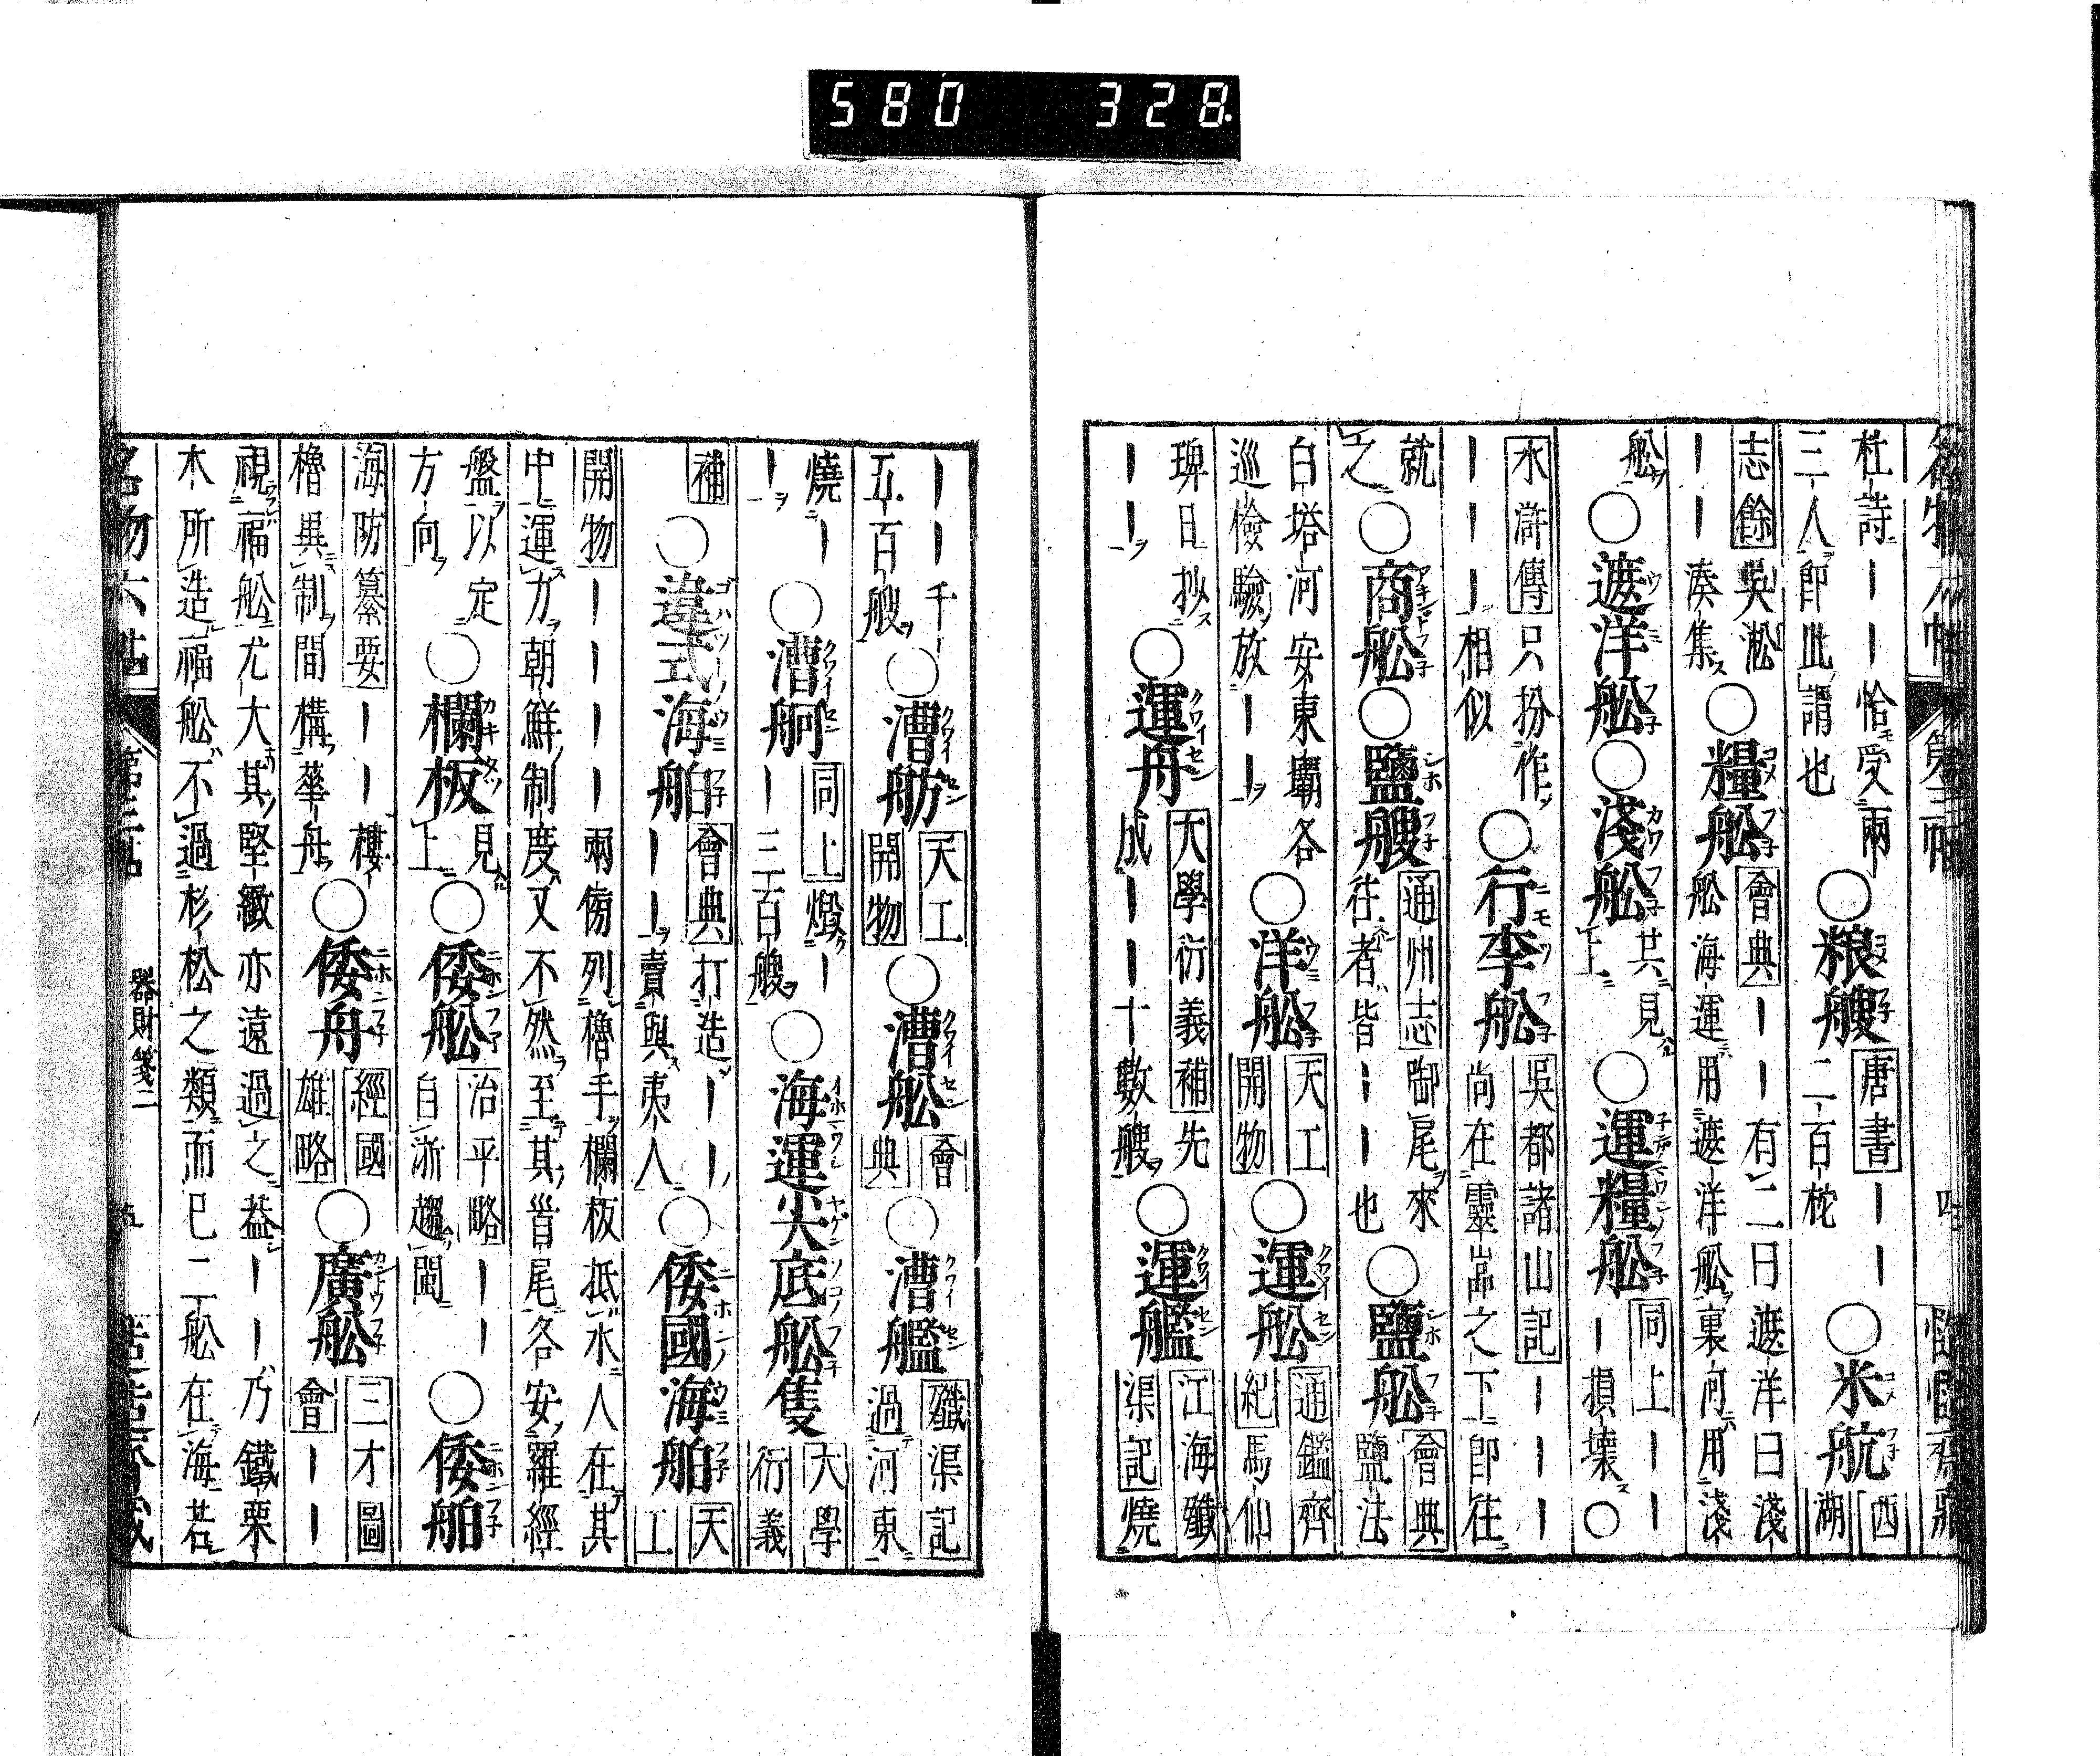 580 328
杜詩ーーー恰受兩
三人即此謂也
○粮艘
唐書ーー
二百柁
○米航
西
湖
志餘吳淞
ーー湊集
○糧船
會典ーー有二曰遮洋曰淺
船海運用遮洋船裏河用淺
船○遮洋船○淺船
共見
上
○運糧船
同上ーー
ー損壞○
水滸傳只扮作
ーーー相似
○行李船
吳都諸山記ーーー
尚在靈嵓之下即往
就
之
○商船○鹽艘
通州志啣尾來
往者皆ーー也
○鹽船
會典
鹽法
白塔河安東壩各
巡儉驗放ーー
○洋船
天工
開物
○運船
通鑑齊
紀馬仙
琕日抄
ーー
○運舟
大學衍義補先
成ーーー十數艘
○運艦
江海殲
渠記燒
ーー千
五百艘
○漕舫
天工
開物
○漕船
會
典
○漕艦
殲渠記
過河東
燒ー
ー
○漕舸
同上燬ー
ー三百艘
○海運尖底船隻
大學
衍義
補
○違式海舶
會典打造ーー
ーー賣與夷人
○倭國海舶
天
工
開物ーーーー兩傍列櫓手欄板抵水人在其
中運力朝鮮制度又不然至其首尾各安羅經
盤以定
方向
○欄板
見
上
○倭船
治平略ーー
自浙趨閩
○倭舶
海防纂要ーー樓
櫓具制間構華舟
○倭舟
經國
雄略
○廣船
三才圖
會ーー
視福船尤大其堅緻亦遠過之益ーー乃鐵栗
木所造福船不過杉松之類而已二船在海若
器財箋二